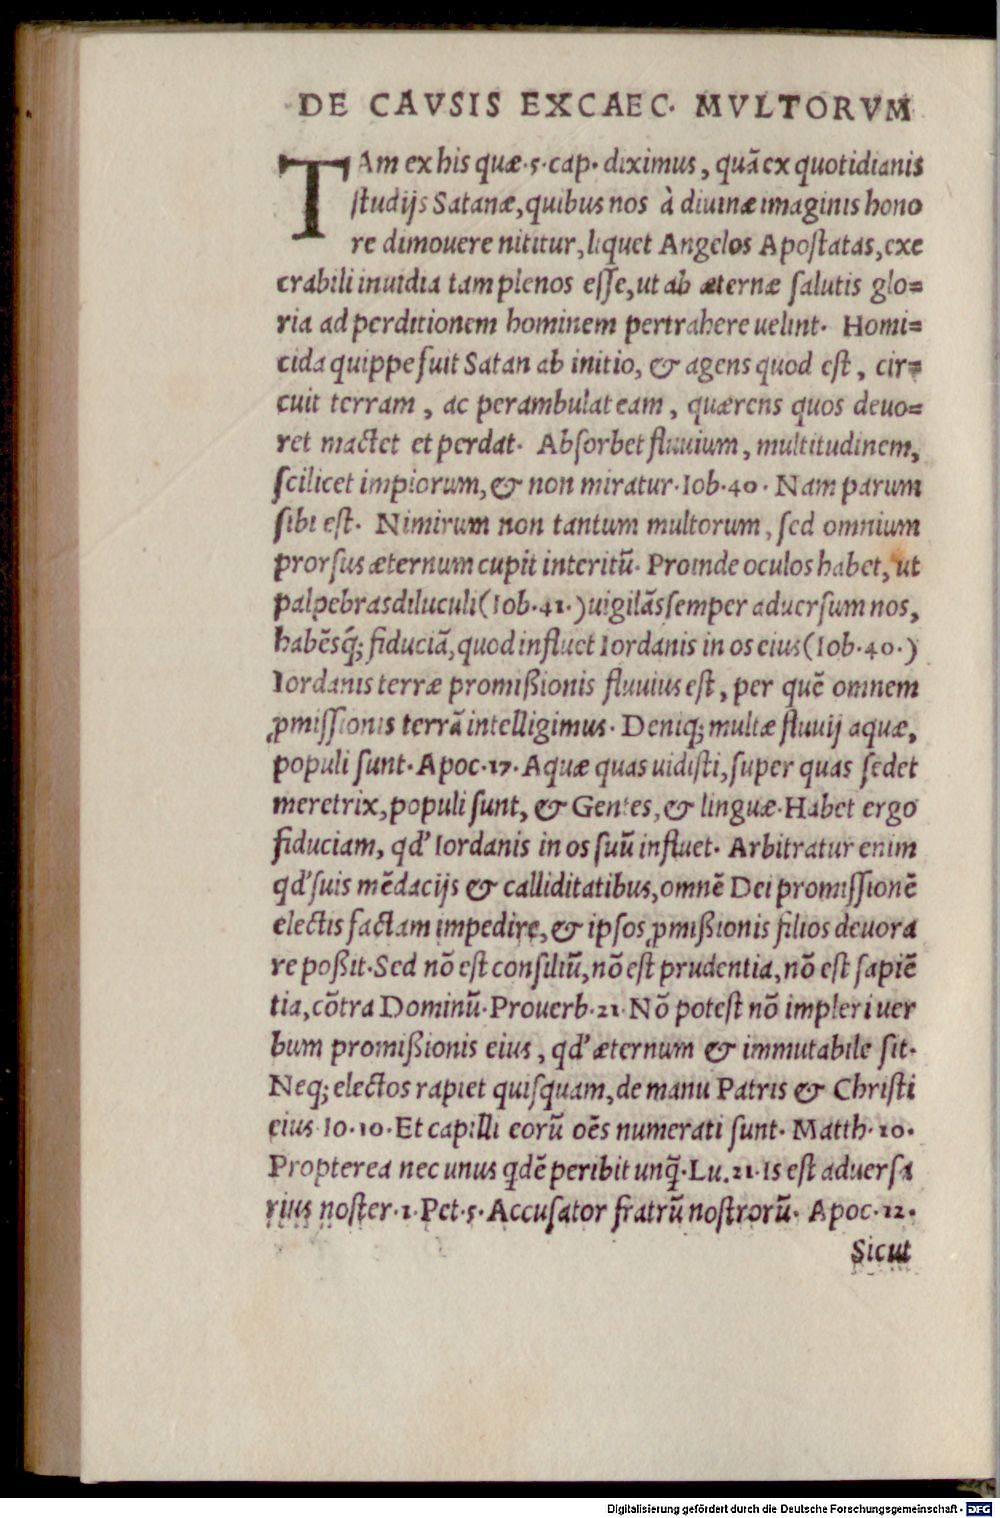 DE CAVSIS EXCAEC· MVLTORVM
TAm ex his quæ·5·cap· diximus, quã ex quotidianis
ſtudijs Satanæ, quibus nos à diuinæ imaginis hono
re dimouere nititur, liquet Angelos Apoſtatas, exe
crabili inuidia tam plenos eſſe, ut ab æternæ ſalutis glo=
ria ad perditionem hominem pertrahere uelint· Homi=
cida quippe fuit Satan ab initio, & agens quod eſt, cir=
cuit terram, ac perambulat eam, quærens quos deuo=
ret mactet et perdat· Abſorbet fluuium, multitudinem,
ſcilicet impiorum, & non miratur· Iob·40· Nam parum
ſibi eſt· Nimirum non tantum multorum, ſed omnium
prorſus æternum cupit interitũ· Proinde oculos habet, ut
palpebras diluculi (Iob·41·) uigilãs ſemper aduerſum nos,
habẽsq́; fiduciã, quod influet Iordanis in os eius (Iob·40·)
Iordanis terræ promißionis fluuius eſt, per quẽ omnem
ꝓmiſſionis terrã intelligimus· Deniq; multæ fluuij aquæ,
populi ſunt· Apoc·17· Aquæ quas uidiſti, ſuper quas ſedet
meretrix, populi ſunt, & Gentes, & linguæ· Habet ergo
fiduciam, qd' Iordanis in os ſuũ influet· Arbitratur enim
qd' ſuis mẽdacijs & calliditatibus, omnẽ Dei promiſſionẽ
electis factam impedire, & ipſos ꝓmißionis filios deuora
re poßit· Sed nõ eſt conſiliũ, nõ eſt prudentia, nõ eſt ſapiẽ
tia, cõtra Dominũ· Prouerb·21· Nõ poteſt nõ impleri uer
bum promißionis eius, qd' æternum & immutabile ſit·
Neq; electos rapiet quiſquam, de manu Patris & Chriſti
eius Io·10· Et capilli eorũ oẽs numerati ſunt· Matth·10·
Propterea nec unus qdẽ peribit unq̃· Lu.21· Is eſt aduerſa
rius noſter·1·Pet·5· Accuſator fratrũ noſtrorũ· Apoc·12·
Sicut
Digitalisierung gefördert durch die Deutsche Forschungsgemeinschaft - DFG